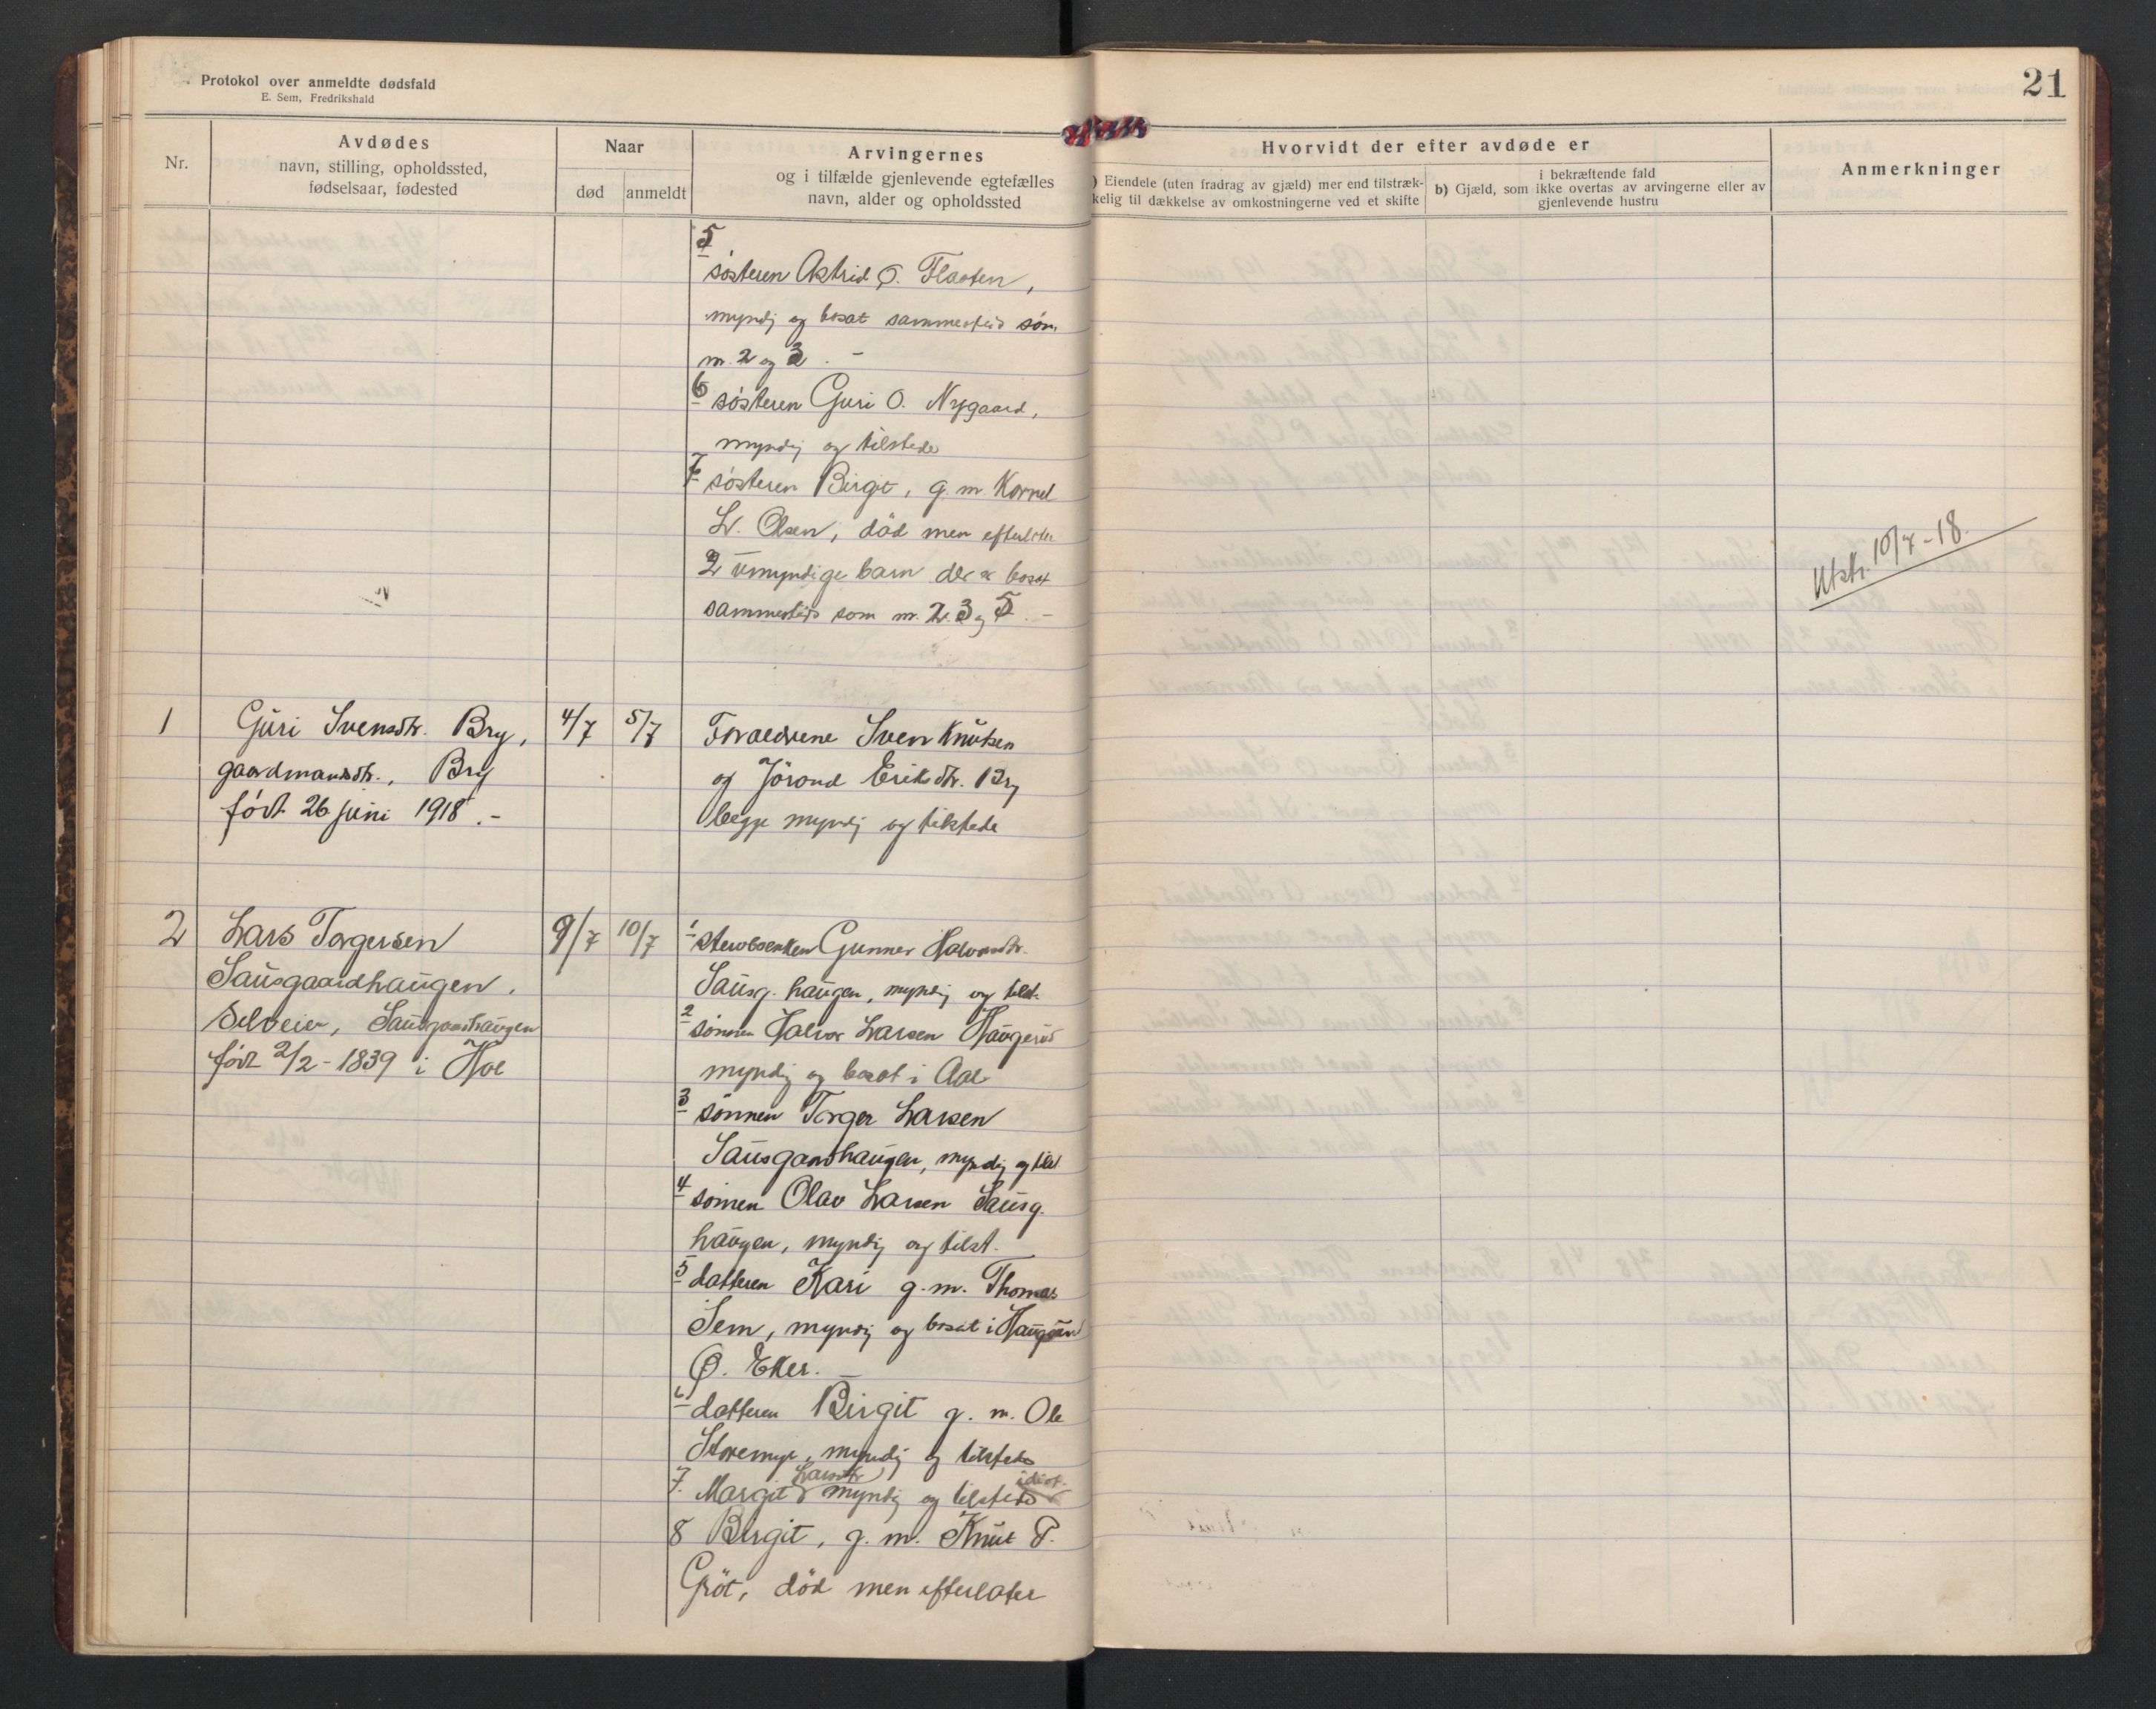 Protokol over anmeldte dødsfald
E. Sem, Fredrikshald
21
Nr.
Avdødes
navn, stilling, opholdssted,
fødselsaar, fødested
Naar
død
anmeldt
Arvingernes
og i tilfælde gjenlevende egtefælles
navn, alder og opholdssted
Hvorvidt der efter avdøde er
) Eiendele (uten fradrag av gjæld) mer end tilstræk-
kelig til dækkelse av omkostningerne ved et skifte
i bekræftende fald
b) Gjæld, som ikke overtas av arvingerne eller av
gjenlevende hustru
Anmerkninger
5
søsteren Astrid O. Flaaten,
myndig og bosat sammesteds som
nr. 2 og 3. -
6 søsteren Guri O. Nygaard,
myndig og tilstede
7 søsteren Birgit, g. m. Kornel
L. Olsen, död men efterlater
2 umyndige barn der er bosat
sammesteds som nr. 2. 3 og 5. -
Utskr. 10/7-18.
1
Guri Svensdtr. Bry,
gaardmandsdtr., Bry
född 26 juni 1918. -
4/7
5/7
Foraeldrene Sven Knutsen
og Jörand Eriksdtr. Bry
begge myndig og tilstede
2
Lars Torgersen
Sausgaardhaugen,
Selveier, Sausgaardhaugen
född 2/2-1839 i Hol
9/7
10/7
1 Gunner Halvorsdtr.
Sausg. haugen, myndig og tilst.
2 sönnen Halvor Larsen Haugerud
myndig og bosat i Aal
3 sönnen Torger Larsen
Sausgaardhaugen, myndig og tilst.
4 sönnen Olav Larsen Sausg.
haugen, myndig og tilst.
5 datteren Kari g. m. Thomas
Sem, myndig og bosat i
Ø. Eker. -
6 datteren Birgit g. m. Ole
Storemyr, myndig og tilstede
7. Margit Larsdtr myndig og tilstede idiot.
8 Birgit, g. m. Knut P.
Gröt, död men efterlater